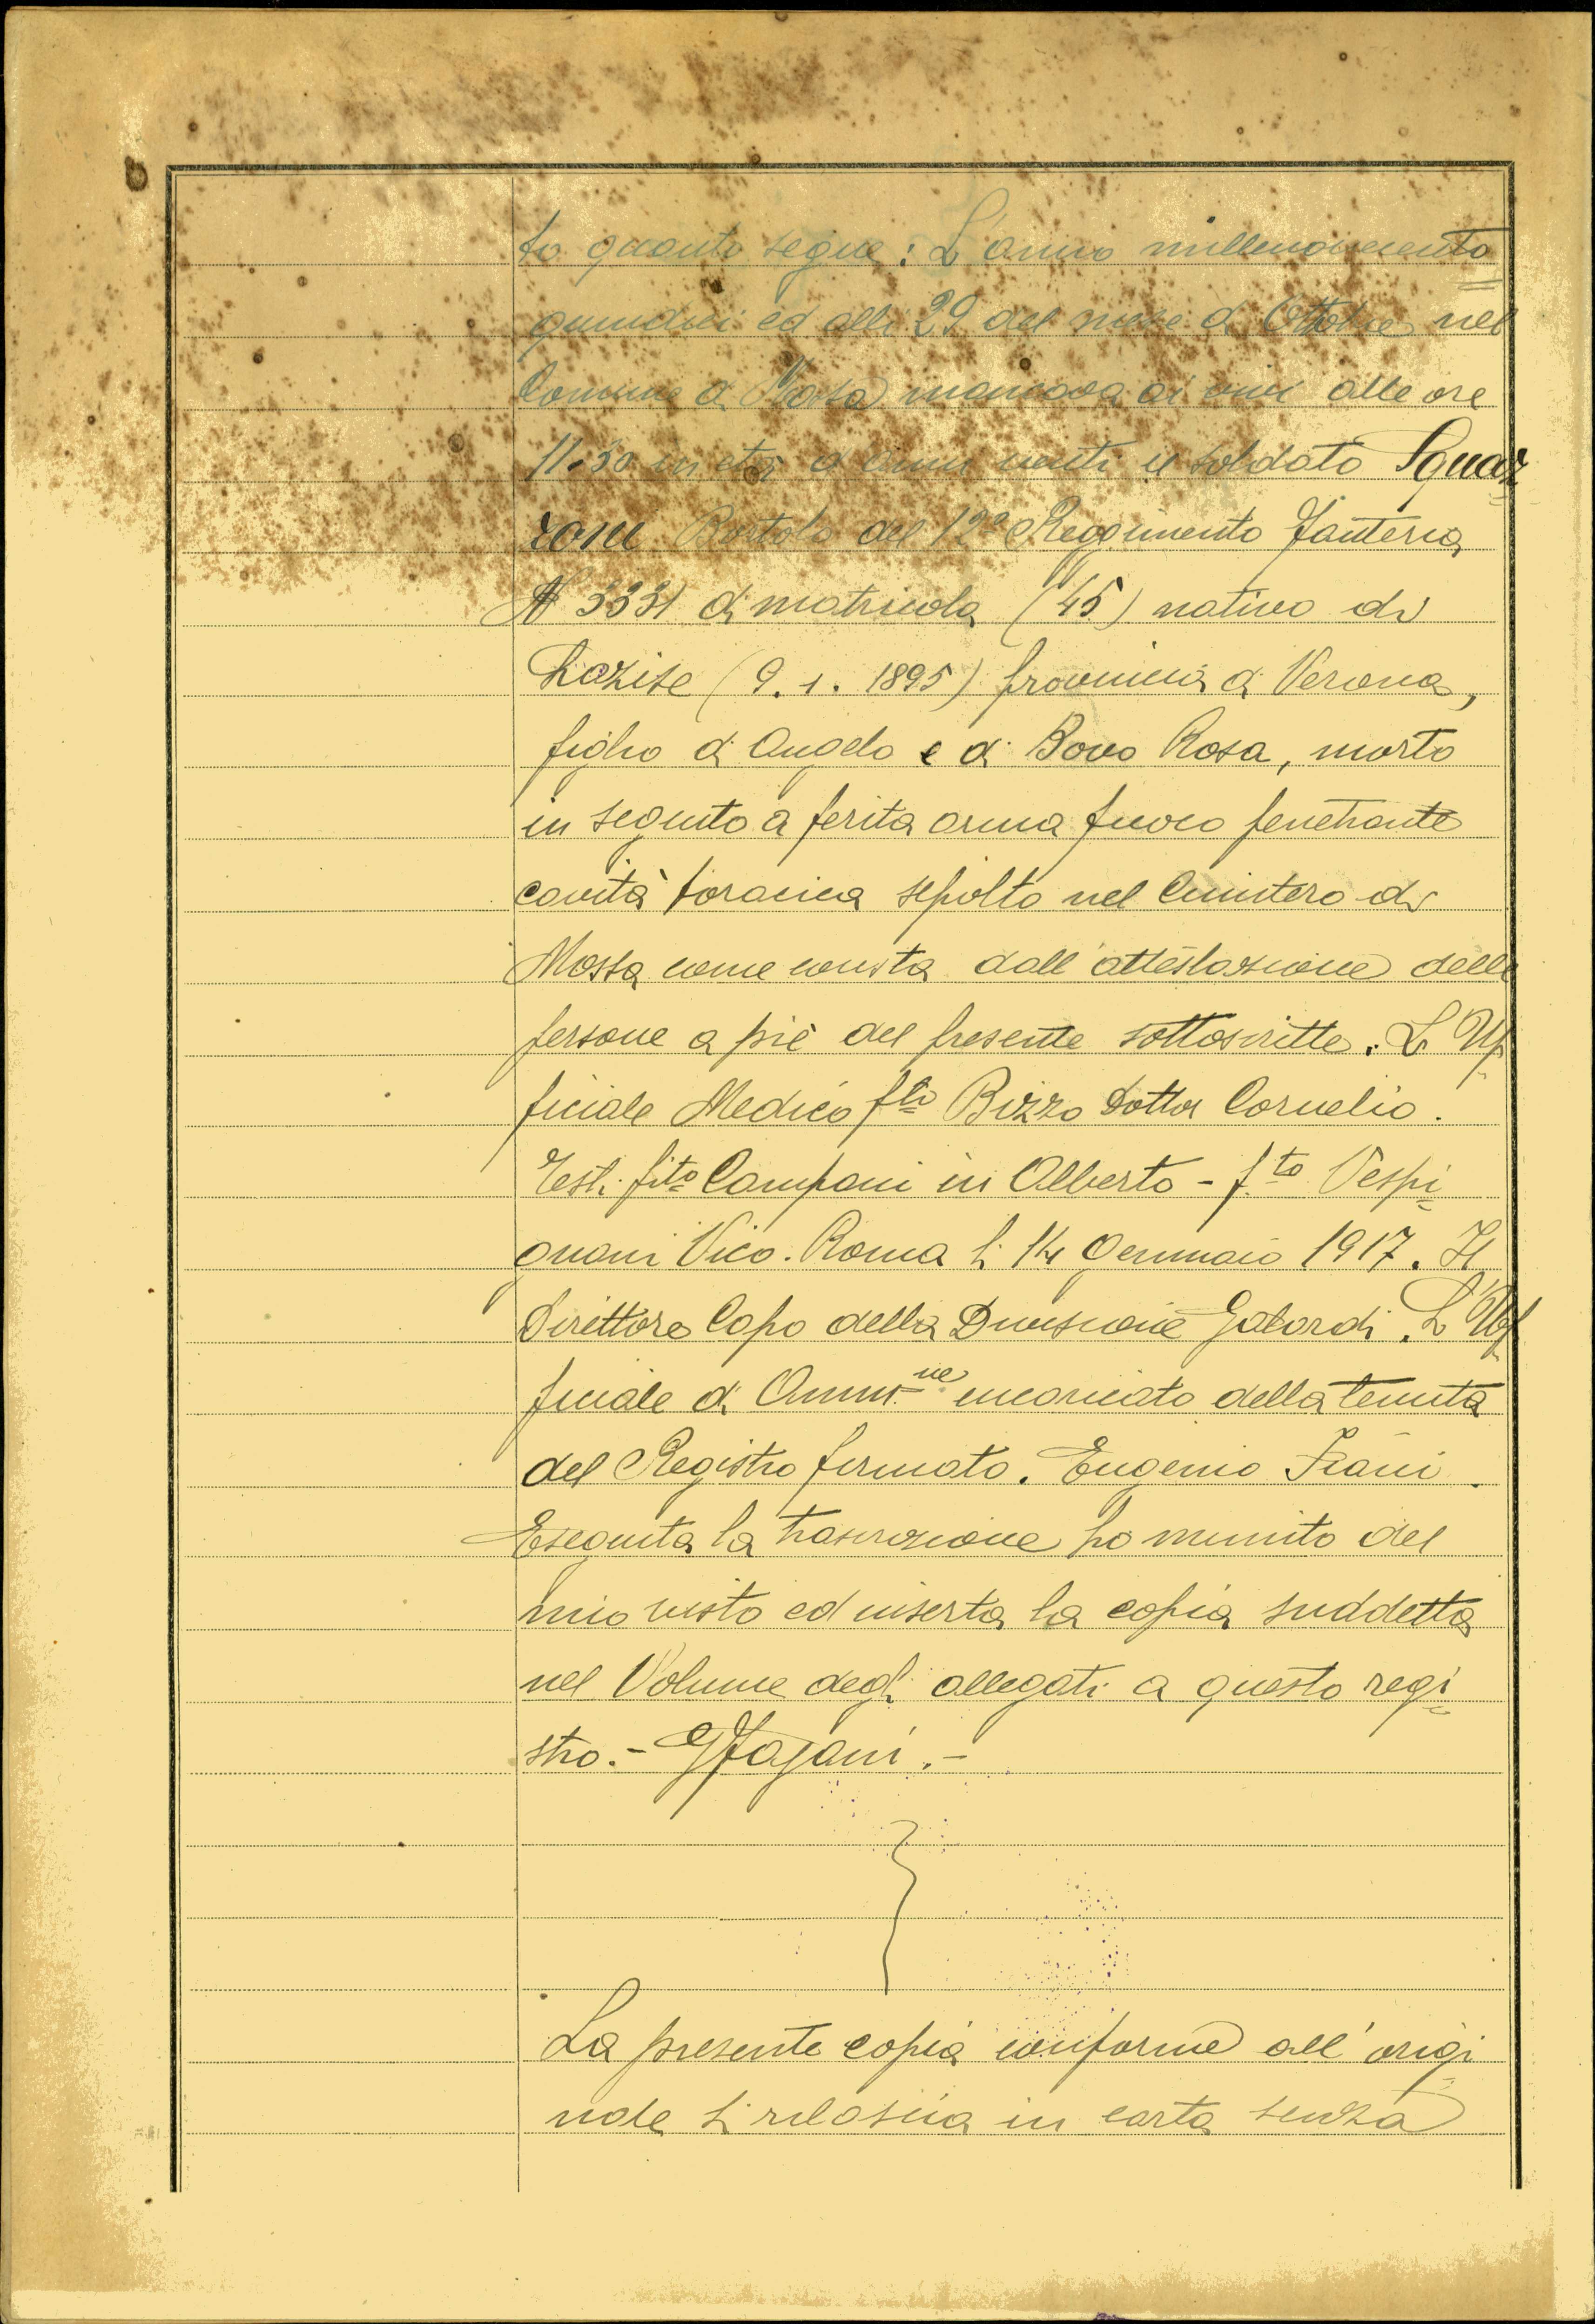 to quanto segue: L'anno millenovecento=
quindici ed alli 29 del mese di Ottobre nel
Comune di Mossa mancava ai vivi alle ore
11.30 in età di anni venti il soldato Squaz=
zoni Bortolo del 12° Reggimento Fanteria
N 3331 di matricola (45) nativo di
Lazise (9.1.1895) provincia di Verona,
figlio di Angelo e di Bovo Rosa, morto
in seguito a ferita arma fuoco penetrante
cavità toracica sepolto nel Cimitero di
Mossa come consta dall'attestazione delle
persone a piè del presente sottoscritte. L'Uf=
ficiale Medico fto Bizzo Dottor Cornelio.
Testi fito Campani in Alberto - f.to Vespi=
gnani Vico. Roma li 14 Gennaio 1917. Il
Direttore Capo della Divisione Galardi. L'Uf=
ficiale di Amm.ne incaricato della tenuta
del Registro firmato. Eugenio Frani.
Eseguita la trascrizione ho munito del
mio visto ed inserta la copia suddetta
nel Volume degli allegati a questo regi=
stro.- GFagani.-
La presente copia conforme all'origi=
nale si rilascia in carta senza